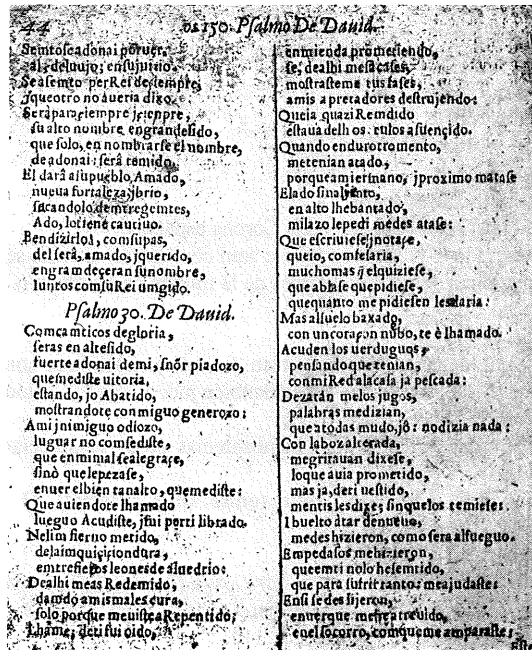 44
os 150. Psalmo De Dauid.
Semtose adonai por uer,
al deluujo; ensujuizio.
Sea semto per Rei desiempre,
jqueotro no aueria dixo.
Sera para siempre jsienpre,
su alto nombre, engrandesido,
que solo, en nombrarse el nombre,
de adonai: será temido.
El dará asupueblo Amado,
nueua fortaleza jbrio,
sacandolo de entregeintes,
Ado, lo tiene cautiuo.
Bendizirloá, com su pas,
del será, amado, jquerido,
engramdeçeran su nombre,
Iuntos comsu Rei umgido.
Psalmo 30. De Dauid.
Com camticos de gloria,
seras en altesido,
fuerte adonai demi, snõr piadozo,
quemediste uitoria,
estando, jo Abatido,
mostrandote con miguo generozo:
Ami jnimiguo odiozo,
luguar no comsediste,
que en mi mal se alegrase,
sinò que le pezase,
en uer el bien tan alto, que mediste:
Que auiendote lhamado
lueguo Acudiste, jfui porti librado.
Nel imfierno metido,
dela imquiçicion dura,
emtre fieros leones de aluedrio:
De alhi meas Redemido,
dando amis males cura,
solo porque meuiste a Repentido;
Lhamé, deti fui oido,
enmienda prometiendo,
se, de alhi me sacases,
mostrasteme tus fases,
amis apretadores destrujendo:
Queia quazi Remdido
estaua delhos. culos asuençido.
Quando en duro tromento,
me tenian atado,
porque ami ermano, jproximo matase
Elado sin aliento,
en alto lhebantado,
mi lazo lepedi me desatase:
Que escriuiese jnotase,
queio, comfesaria,
mucho mas q̃ el quiziese,
que ablase que pidiese,
que quanto me pidiesen les daria:
Mas al suelo baxado,
con un coraçon nubo, te è lhamado.
Acuden los uerdugos,
pensando que tenian,
con mi Red ala casa ja pescada:
Dezatan me los jugos,
palabras me dizian,
que atodas mudo, jò: no dizia nada:
Con la boz alterada,
me gritauan dixese,
lo que auia prometido,
mas ja, deti uestido,
mentis les dixe; sin que los temiese:
I buelto atar denueuo,
medes hizieron, como sera al fueguo.
Empedasos mehizieron,
que emti no lo he semtido,
que para sufrir tanto; me ajudaste:
Ensi se des hizeron,
en uerque me he atreuido,
en el socorro, com que me amparaste: